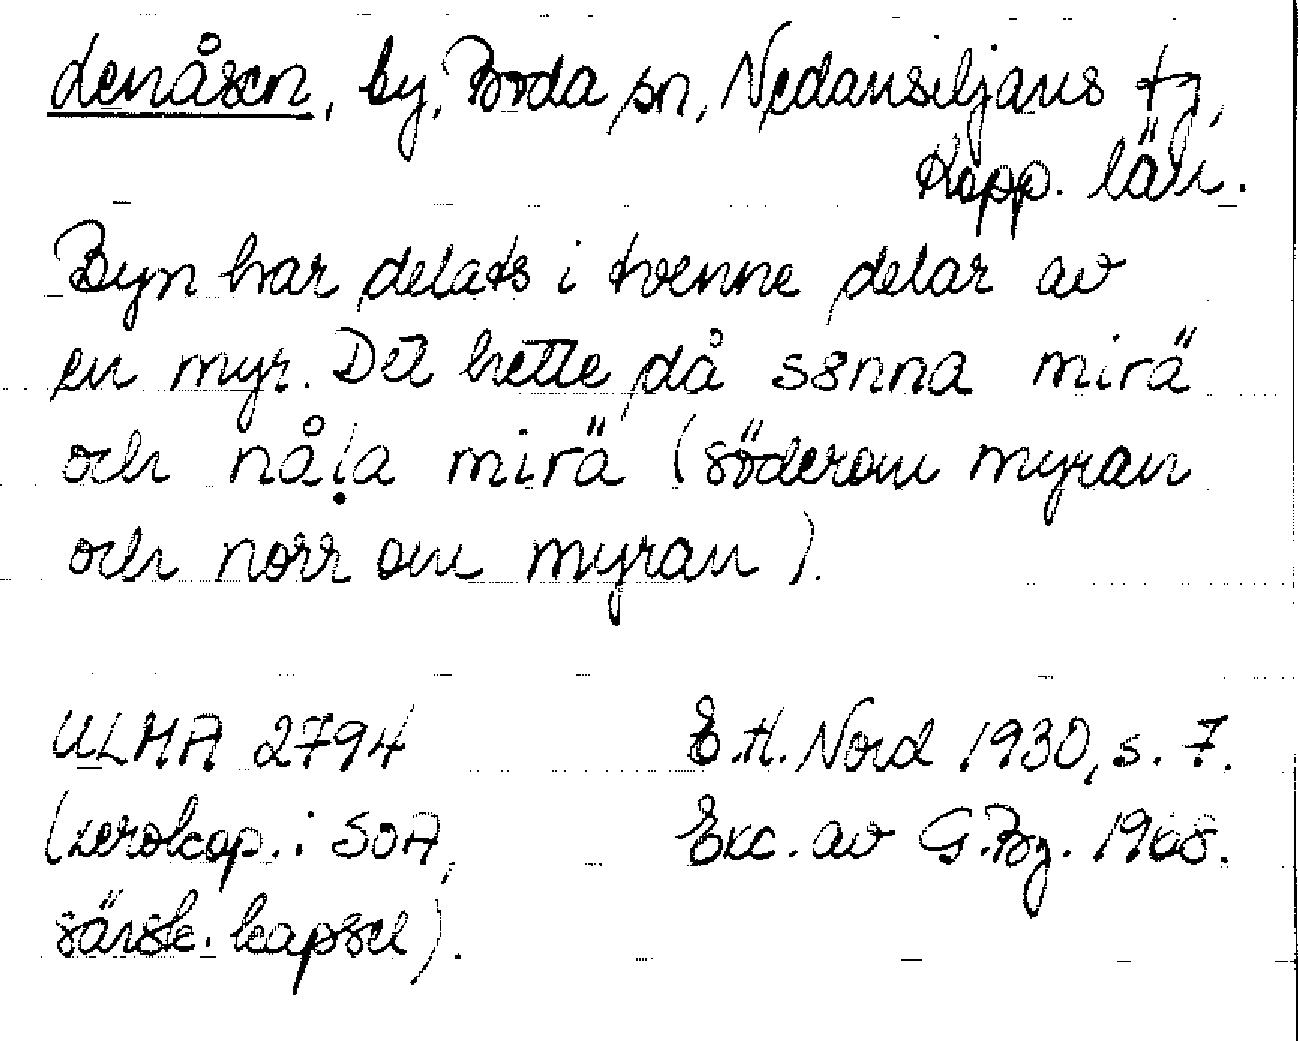 Lenåsen, by, Boda sn, Nedansiljans tg,
Kopp. län.
Byn har delats i tvenne delar av
en myr. Det hette då sønna mirä
och nåḷa mirä (söderom myran
och norr om myran).
ULMA 2794 E.H. Nord 1930, s. 7.
(xerokop. i SOA, Exc. av G.Bg. 1968.
särsk. kapsel).